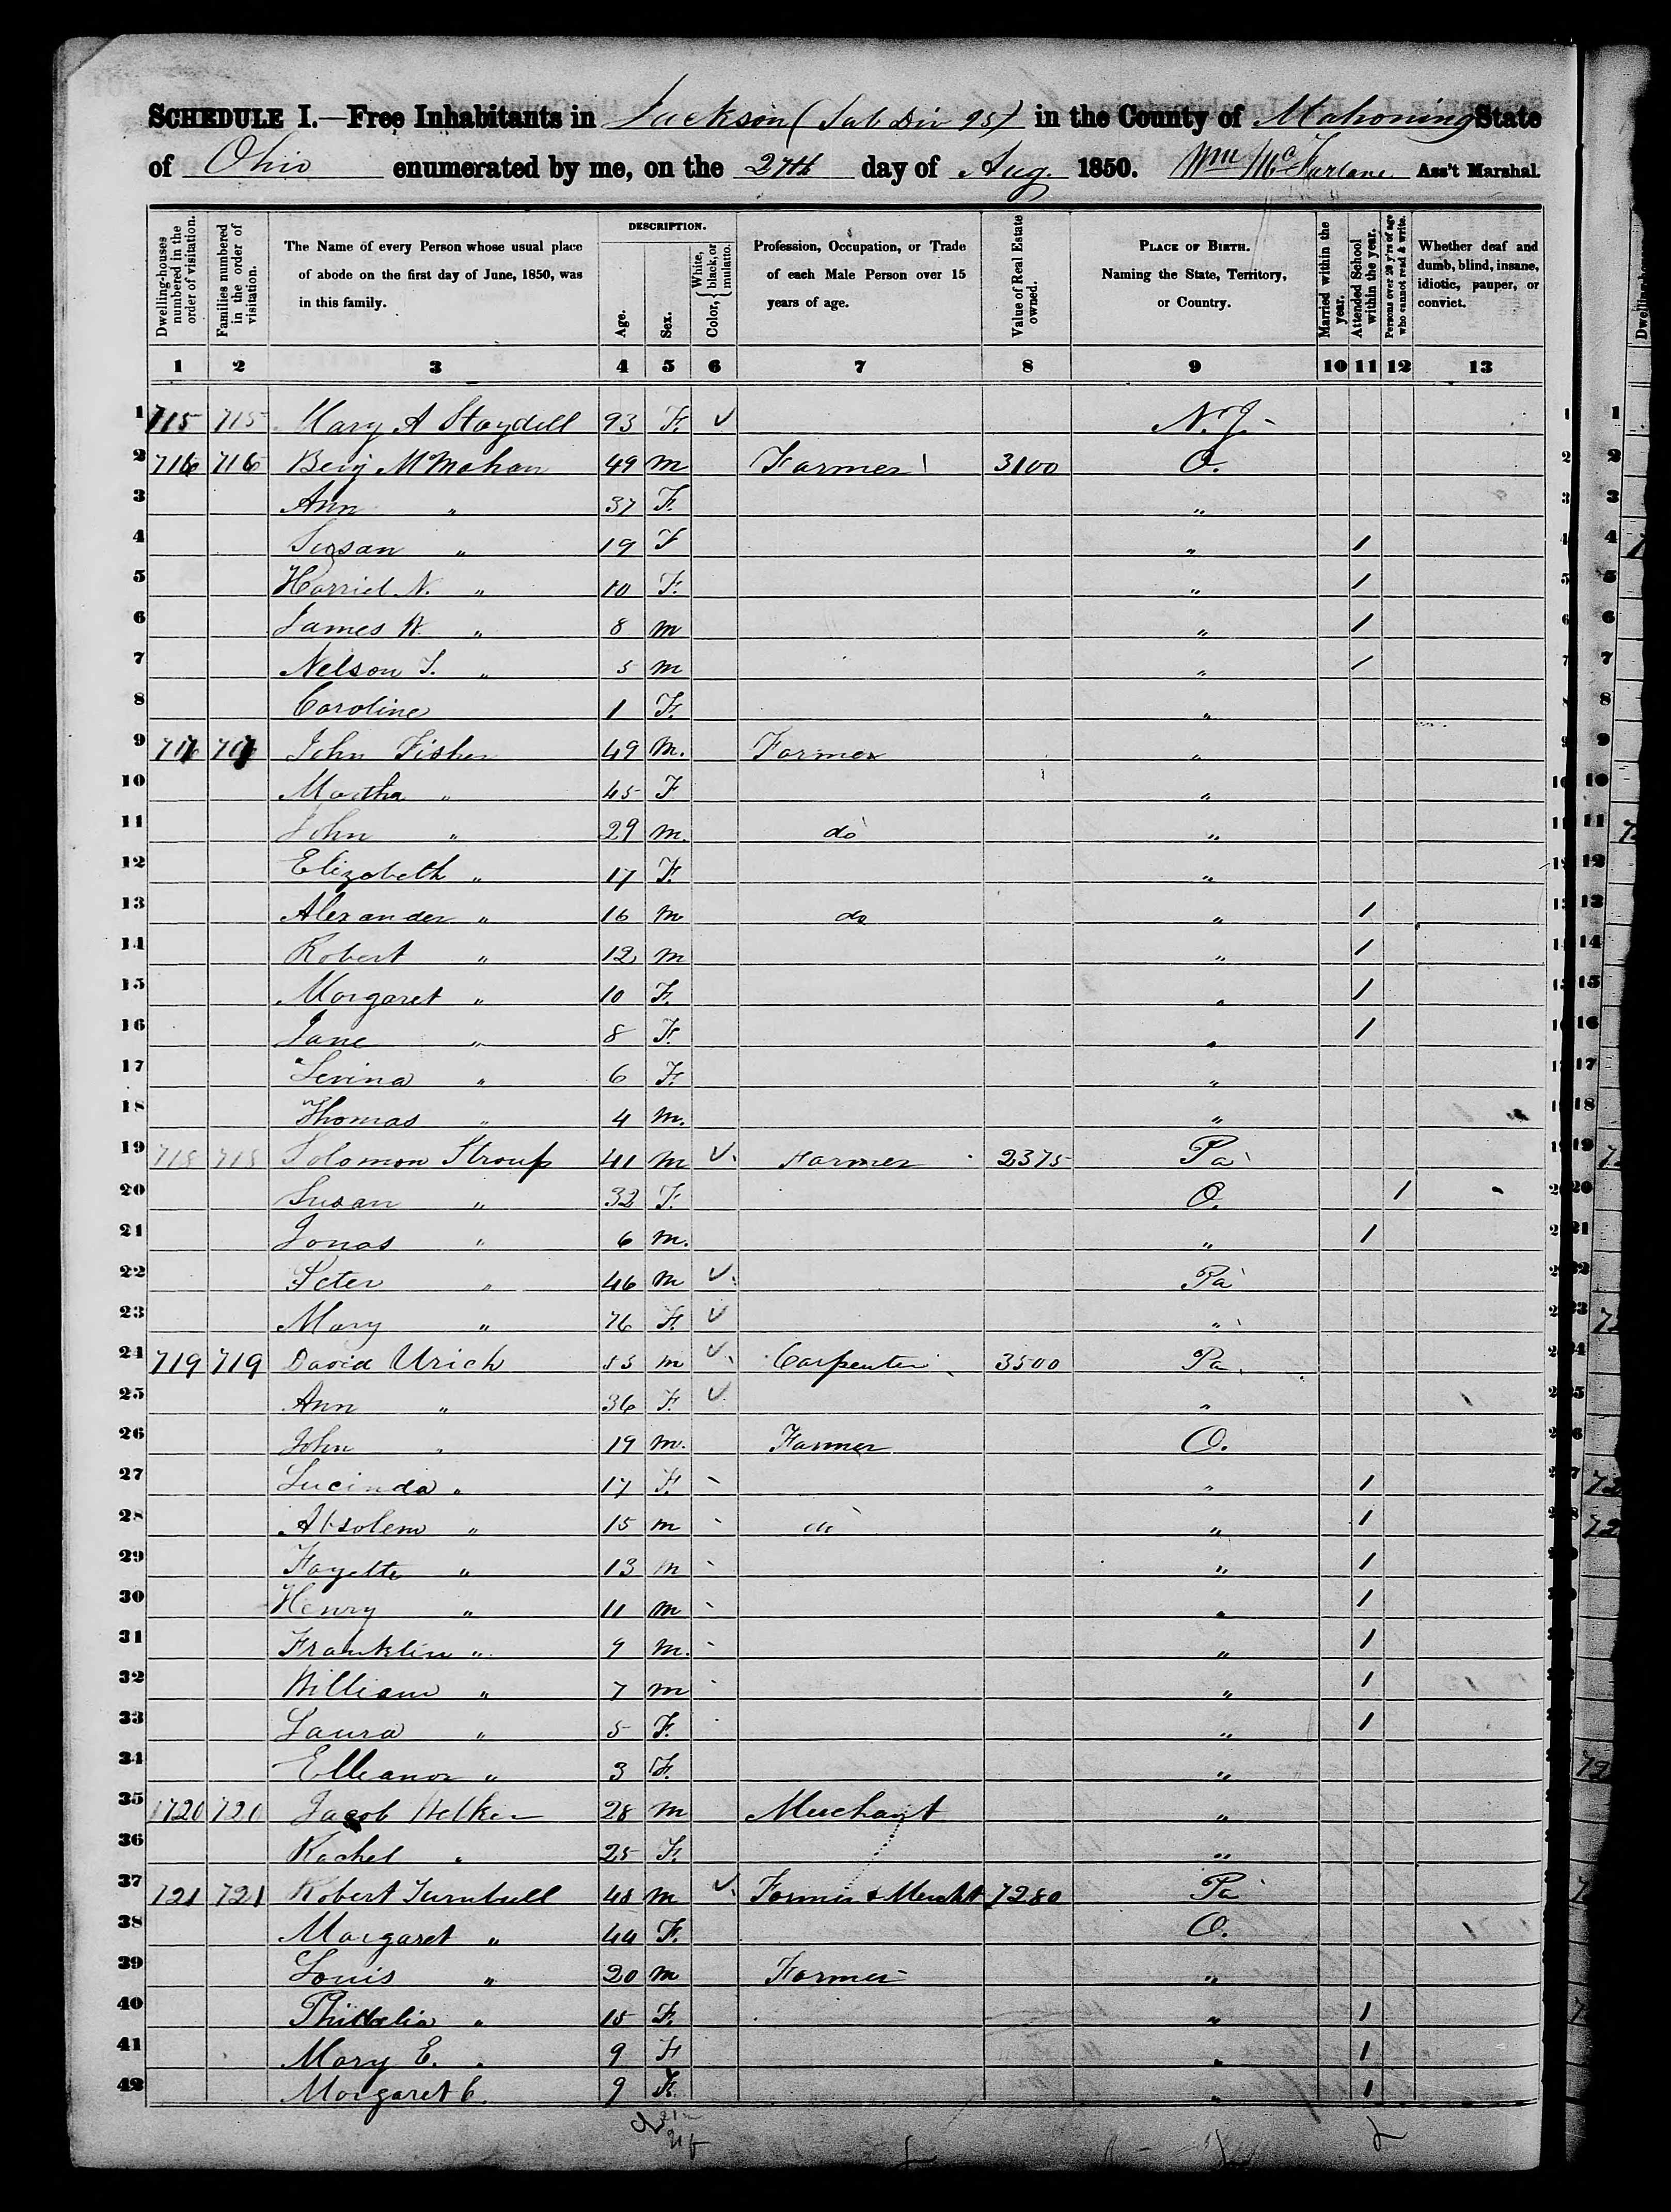 SCHEDULE I.—Free Inhabitants in Jackson (Sub Div 95) in the County of Mahoning State
of Ohio enumerated by me, on the 27th day of Aug. 1850. Wm McFarlane Ass't Marshal.
Dwelling-houses numbered in the order of visitation.
Families numbered in the order of visitation.
The Name of every Person whose usual place of abode on the first day of June, 1850, was in this family.
DESCRIPTION.
Age.
Sex.
Color, { White, black, or mulatto.
Profession, Occupation, or Trade of each Male Person over 15 years of age.
Value of Real Estate owned.
PLACE OF BIRTH. Naming the State, Territory, or Country.
Married within the year.
Attended School within the year.
Persons over 20 y'rs of age who cannot read & write.
Whether deaf and dumb, blind, insane, idiotic, pauper, or convict.
1 2 3 4 5 6 7 8 9 10 11 12 13
1 715 715 Mary A 93 F. ✓ N.J. 1
2 716 716 Benj McMahan 49 m Farmer 3100 O. 2
3 Ann " 37 F. " 3
4 Susan " 19 F " 1 4
5 Harriet N. " 10 F. " 1 5
6 James W. " 8 m " 1 6
7 Nelson T. " 5 m " 1 7
8 Caroline 1 F. " 8
9 717 717 John Fisher 49 m. Farmer " 9
10 Martha " 45 F " 10
11 John " 29 m. do " 11
12 Elizabeth " 17 F. " 12
13 Alexander " 16 m do " 1 13
14 Robert " 12 m " 1 14
15 Margaret " 10 F. " 1 15
16 Jane " 8 F. " 1 16
17 Levina " 6 F. " 17
18 Thomas " 4 m. " 18
19 718 718 Solomon Stroup 41 m ✓ Farmer 2375 Pa 19
20 Susan " 32 F. O. 1 20
21 Jonas " 6 m. " 1 21
22 Peter " 46 m ✓ Pa 22
23 Mary " 76 F. ✓ " 23
24 719 719 David Urich 53 m ✓ Carpenter 3500 Pa 24
25 Ann " 36 F. ✓ " 25
26 John " 19 m. Farmer O. 26
27 Lucinda " 17 F. " 1
28 Absolem " 15 m do " 1
29 Fayette " 13 m " 1
30 Henry " 11 m " 1
31 Franklin " 9 m. " 1
32 William " 7 m " 1
33 Laura " 5 F. " 1
34 Elleanor " 3 F. "
35 720 720 Jacob 28 m Merchant "
36 Rachel " 25 F. "
37 721 721 Robert Turnbull 48 m ✓ Farmer & Mercht 7280 Pa
38 Margaret " 44 F. O.
39 Louis " 20 m Farmer "
40 " 15 F. " 1
41 Mary E. " 9 F " 1
42 Margaret C. 9 F. " 1